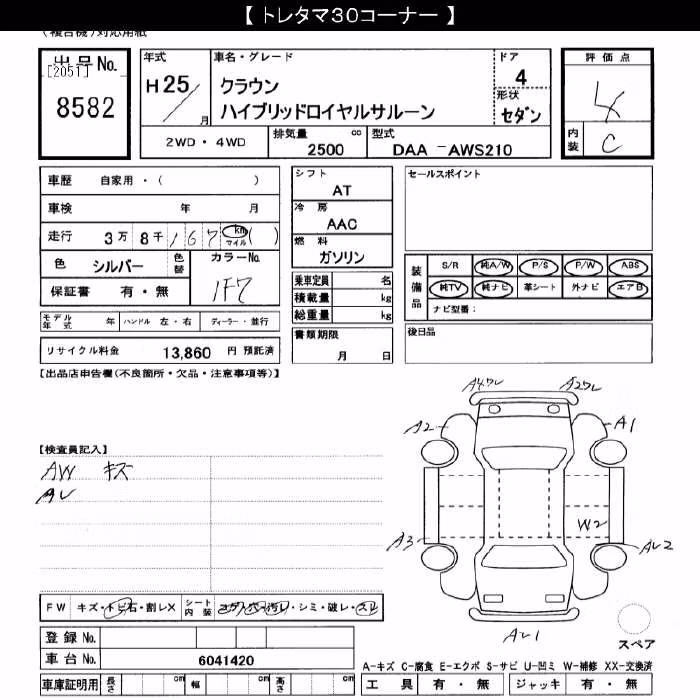 【 トレタマ30コーナー 】
(複合機)対応用紙
出品No.
[2051]
8582
年式
H 25/ 月
車名・グレード
クラウン
ハイブリッドロイヤルサルーン
ドア
4
形状
セダン
評価点
4
内装
C
2WD・4WD
排気量 cc
2500
型式
DAA -AWS210
車歴 自家用・( )
車検 年 月
走行 3万 8千 167 km マイル ( )
色 シルバー 色替
カラーNo.
1F7
保証書 有・無
モデル年式 年 ハンドル 左・右 ディーラー・並行
リサイクル料金 13,860 円 預託済
シフト
AT
冷房
AAC
燃料
ガソリン
乗車定員 名
積載量 kg
総重量 kg
書類期限
月 日
セールスポイント
装備品
S/R 純A/W P/S P/W ABS
純TV 純ナビ 革シート 外ナビ エアB
ナビ型番:
後日品
【出品店申告欄(不良箇所・欠品・注意事項等)】
【検査員記入】
AW キズ
Aレ
A4ワレ A2ワレ
A2 A1
A3 W2 Aレ2
Aレ1
スペア
FW キズ・トビ石・割レX
シート内装 コゲ・穴・汚レ・シミ・破レ・スレ
登録No.
車台No. 6041420
車庫証明用 長さ cm 幅 cm 高さ cm
A-キズ C-腐食 E-エクボ S-サビ U-凹ミ W-補修 XX-交換済
工具 有・無 ジャッキ 有・無